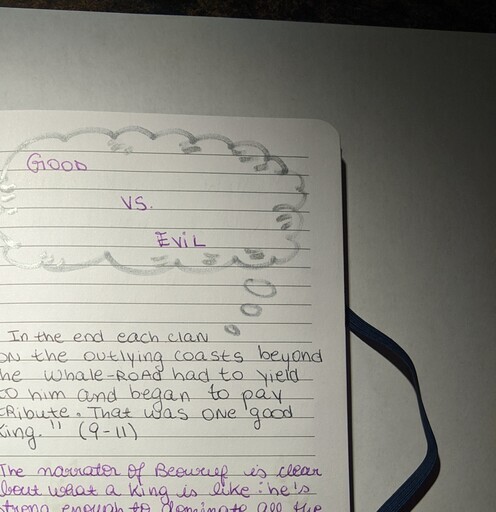 GOOD
VS.
EViL
In the end each clan
on the outlying coasts beyond
he whale-ROAd had to yield
to him and began to pay
tribute. That was one good
King." (9-11)
The narrator of Beowulf is clear
about what a King is like: he's
strong enough to dominate all the